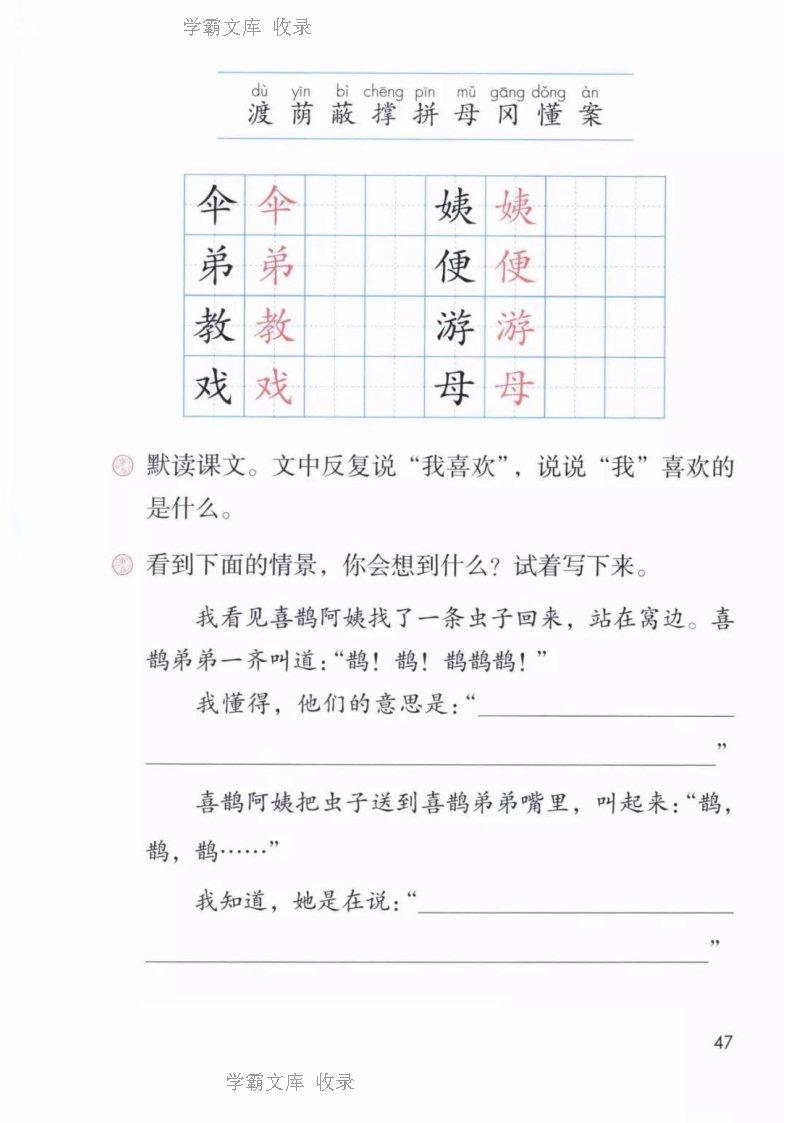 学霸文库 收录
dù yīn bì chēng pīn mǔ gāng dǒng àn
渡 荫 蔽 撑 拼 母 冈 懂 案
伞 伞 姨 姨
弟 弟 便 便
教 教 游 游
戏 戏 母 母
默读课文。文中反复说“我喜欢”，说说“我”喜欢的
是什么。
看到下面的情景，你会想到什么？试着写下来。
我看见喜鹊阿姨找了一条虫子回来，站在窝边。喜
鹊弟弟一齐叫道：“鹊！鹊！鹊鹊鹊！”
我懂得，他们的意思是：“
”
喜鹊阿姨把虫子送到喜鹊弟弟嘴里，叫起来：“鹊，
鹊，鹊……”
我知道，她是在说：“
”
47
学霸文库 收录